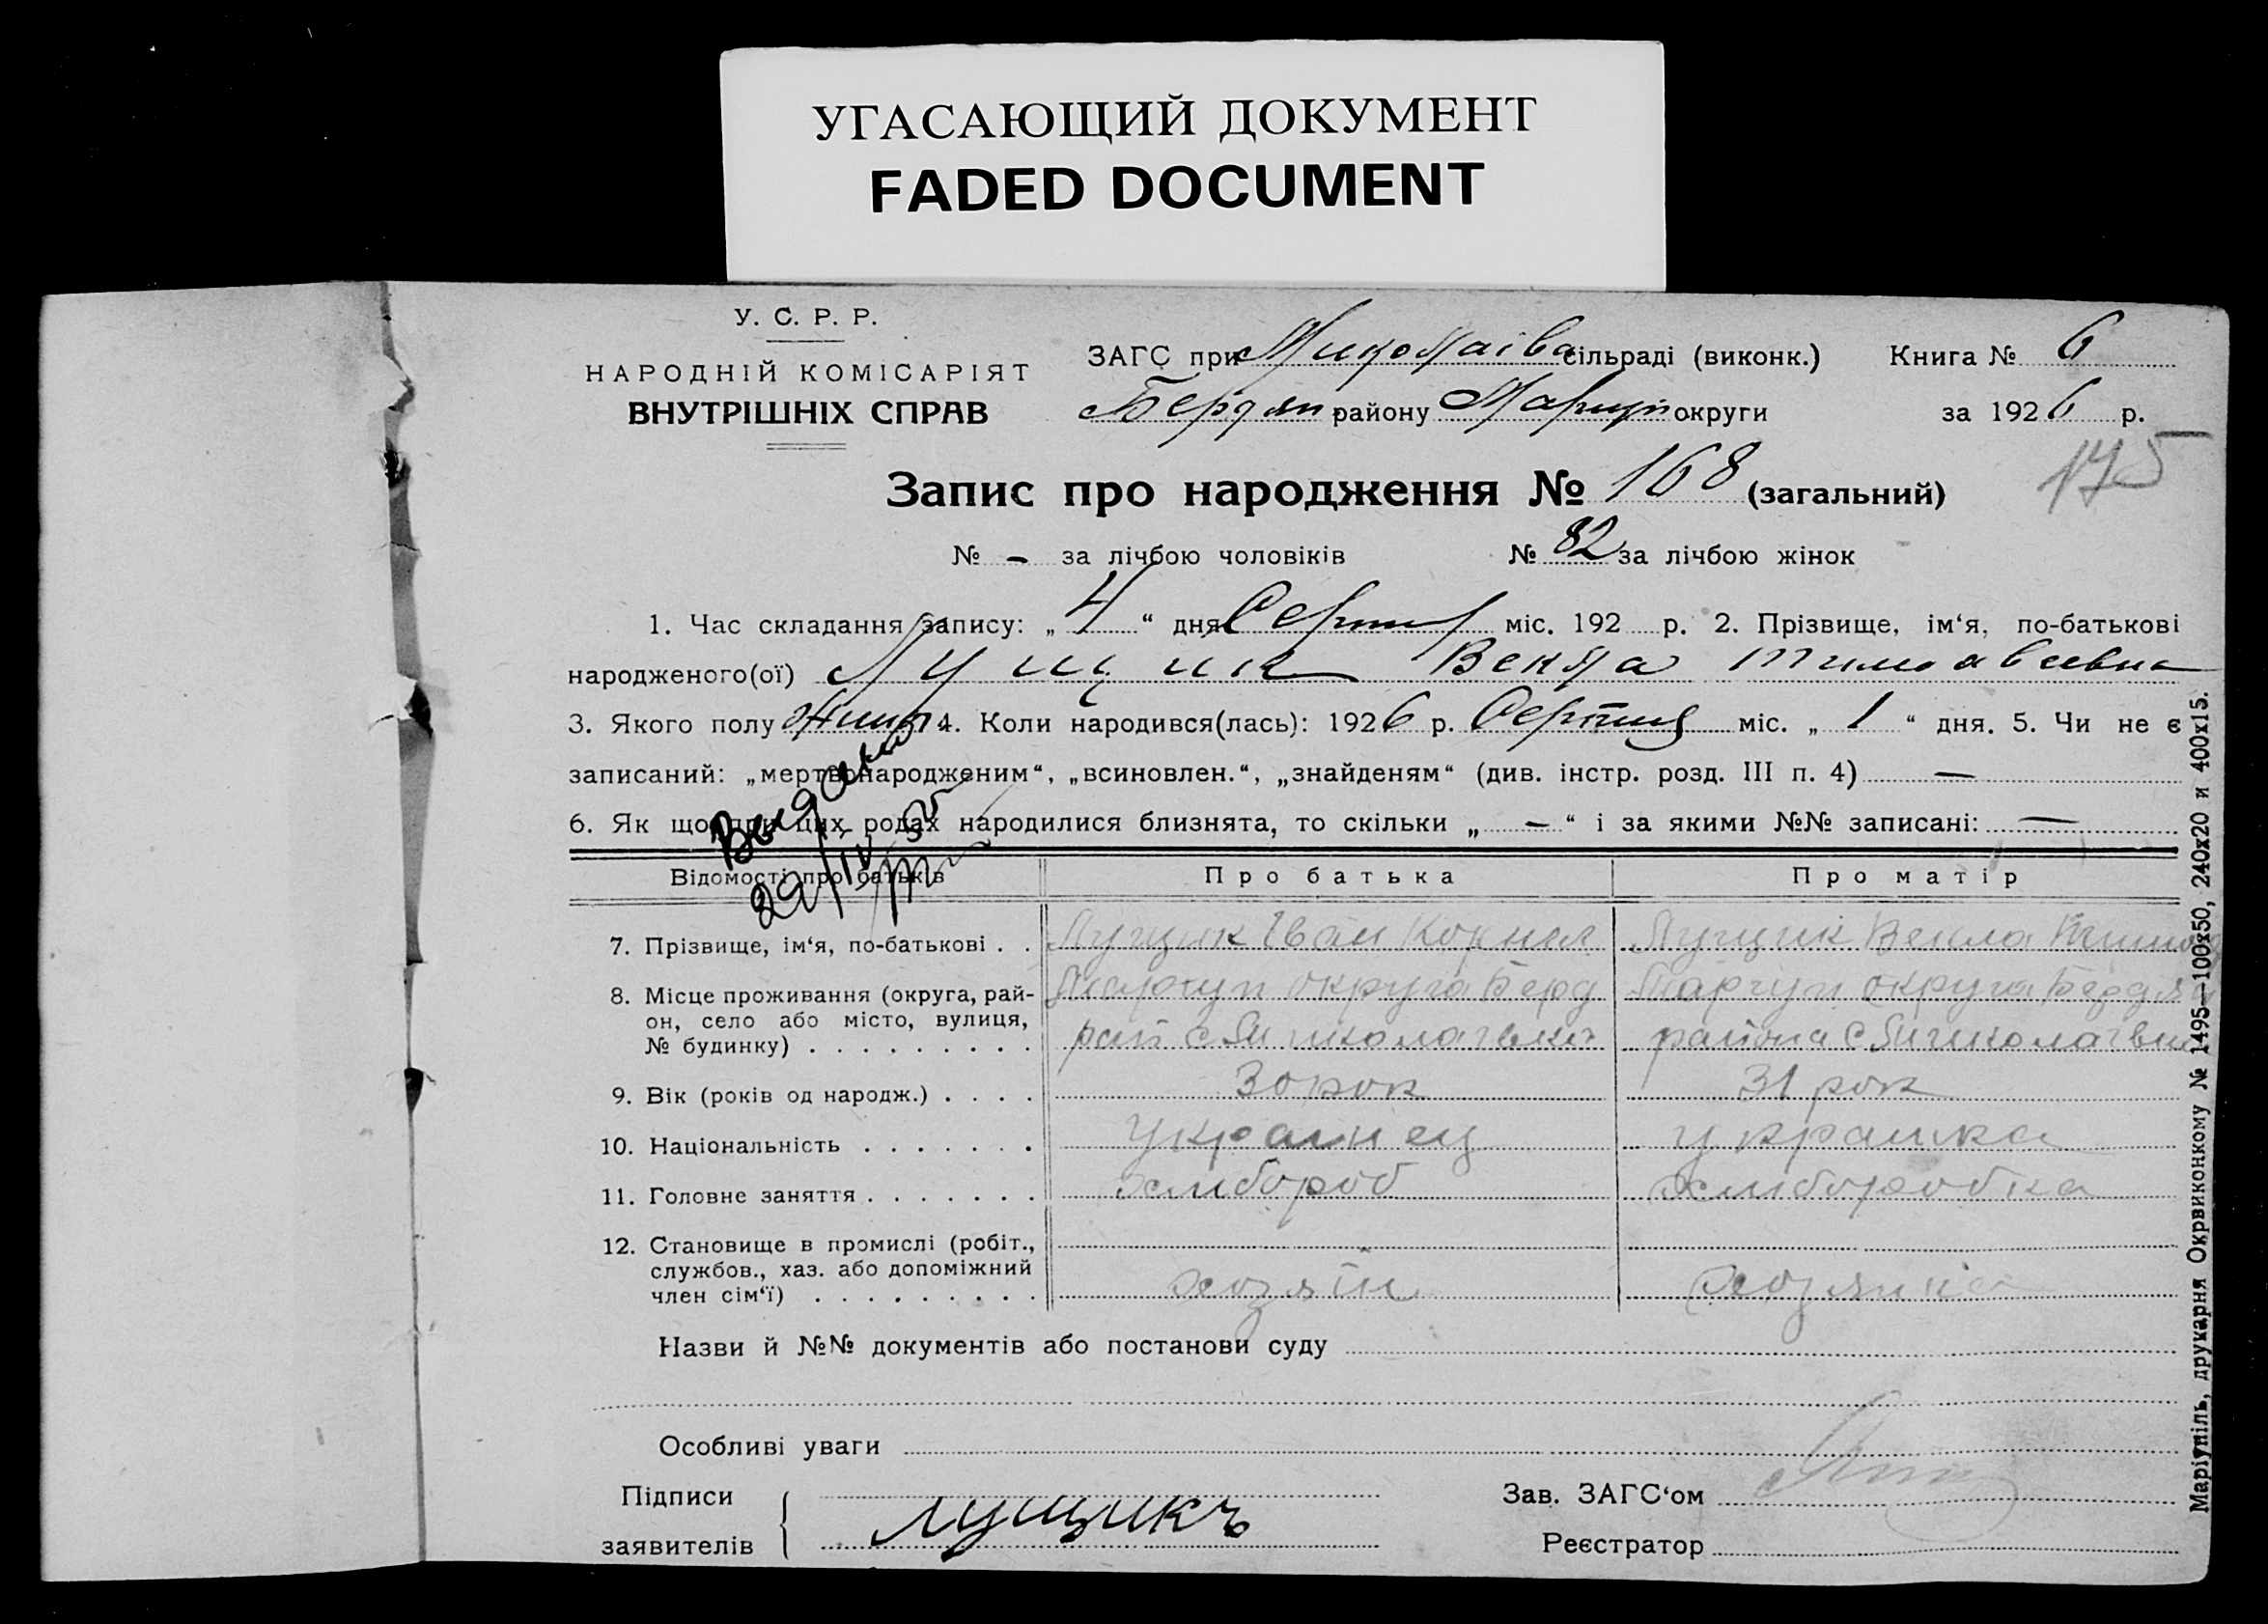 УГАСАЮЩИЙ ДОКУМЕНТ
FADED DOCUMENT
У. С. Р. Р.
НАРОДНІЙ КОМІСАРІЯТ
ВНУТРІШНІХ СПРАВ
ЗАГС при Миколаівс сільраді (виконк.) Книга № 6
Бердян району Маріуп округи за 1926 р.
175
Запис про народження № 168 (загальний)
№ – за лічбою чоловіків № 82 за лічбою жінок
1. Час складання запису: „ 4 “ дня Серпня міс. 192 р. 2. Прізвище, ім‘я, по-батькові
народженого(ої) Лущик Векла
3. Якого полу Жіноч 4. Коли народився(лась): 1926 р. Серпня міс. „ 1 “ дня. 5. Чи не є
записаний: „мертвонародженим“, „всиновлен.“, „знайденям“ (див. інстр. розд. III п. 4) —
6. Як що при цих родах народилися близнята, то скільки „ — “ і за якими №№ записані: —
29/IV
Відомості про батьків Про батька Про матір
7. Прізвище, ім‘я, по-батькові . . Лущик Іван Корнил Лущик Векла
8. Місце проживання (округа, рай- Маріуп округа Берд Маріуп округа Бердя
он, село або місто, вулиця, рай с Миколаівка района с Миколаівка
№ будинку) . . . . . . . . .
9. Вік (років од народж.) . . . . 30 рок 31 рок
10. Національність . . . . . . . украинец украинка
11. Головне заняття . . . . . . . хлибороб хлиборобка
12. Становище в промислі (робіт.,
службов., хаз. або допоміжний
член сім‘ї) . . . . . . . . . хозяін хозяика
Назви й №№ документів або постанови суду
Особливі уваги
Підписи Зав. ЗАГС‘ом
заявителів Лущикъ Реєстратор
Маріупіль, друкарня Окрвиконкому № 1495—100x50, 240x20 и 400x15.